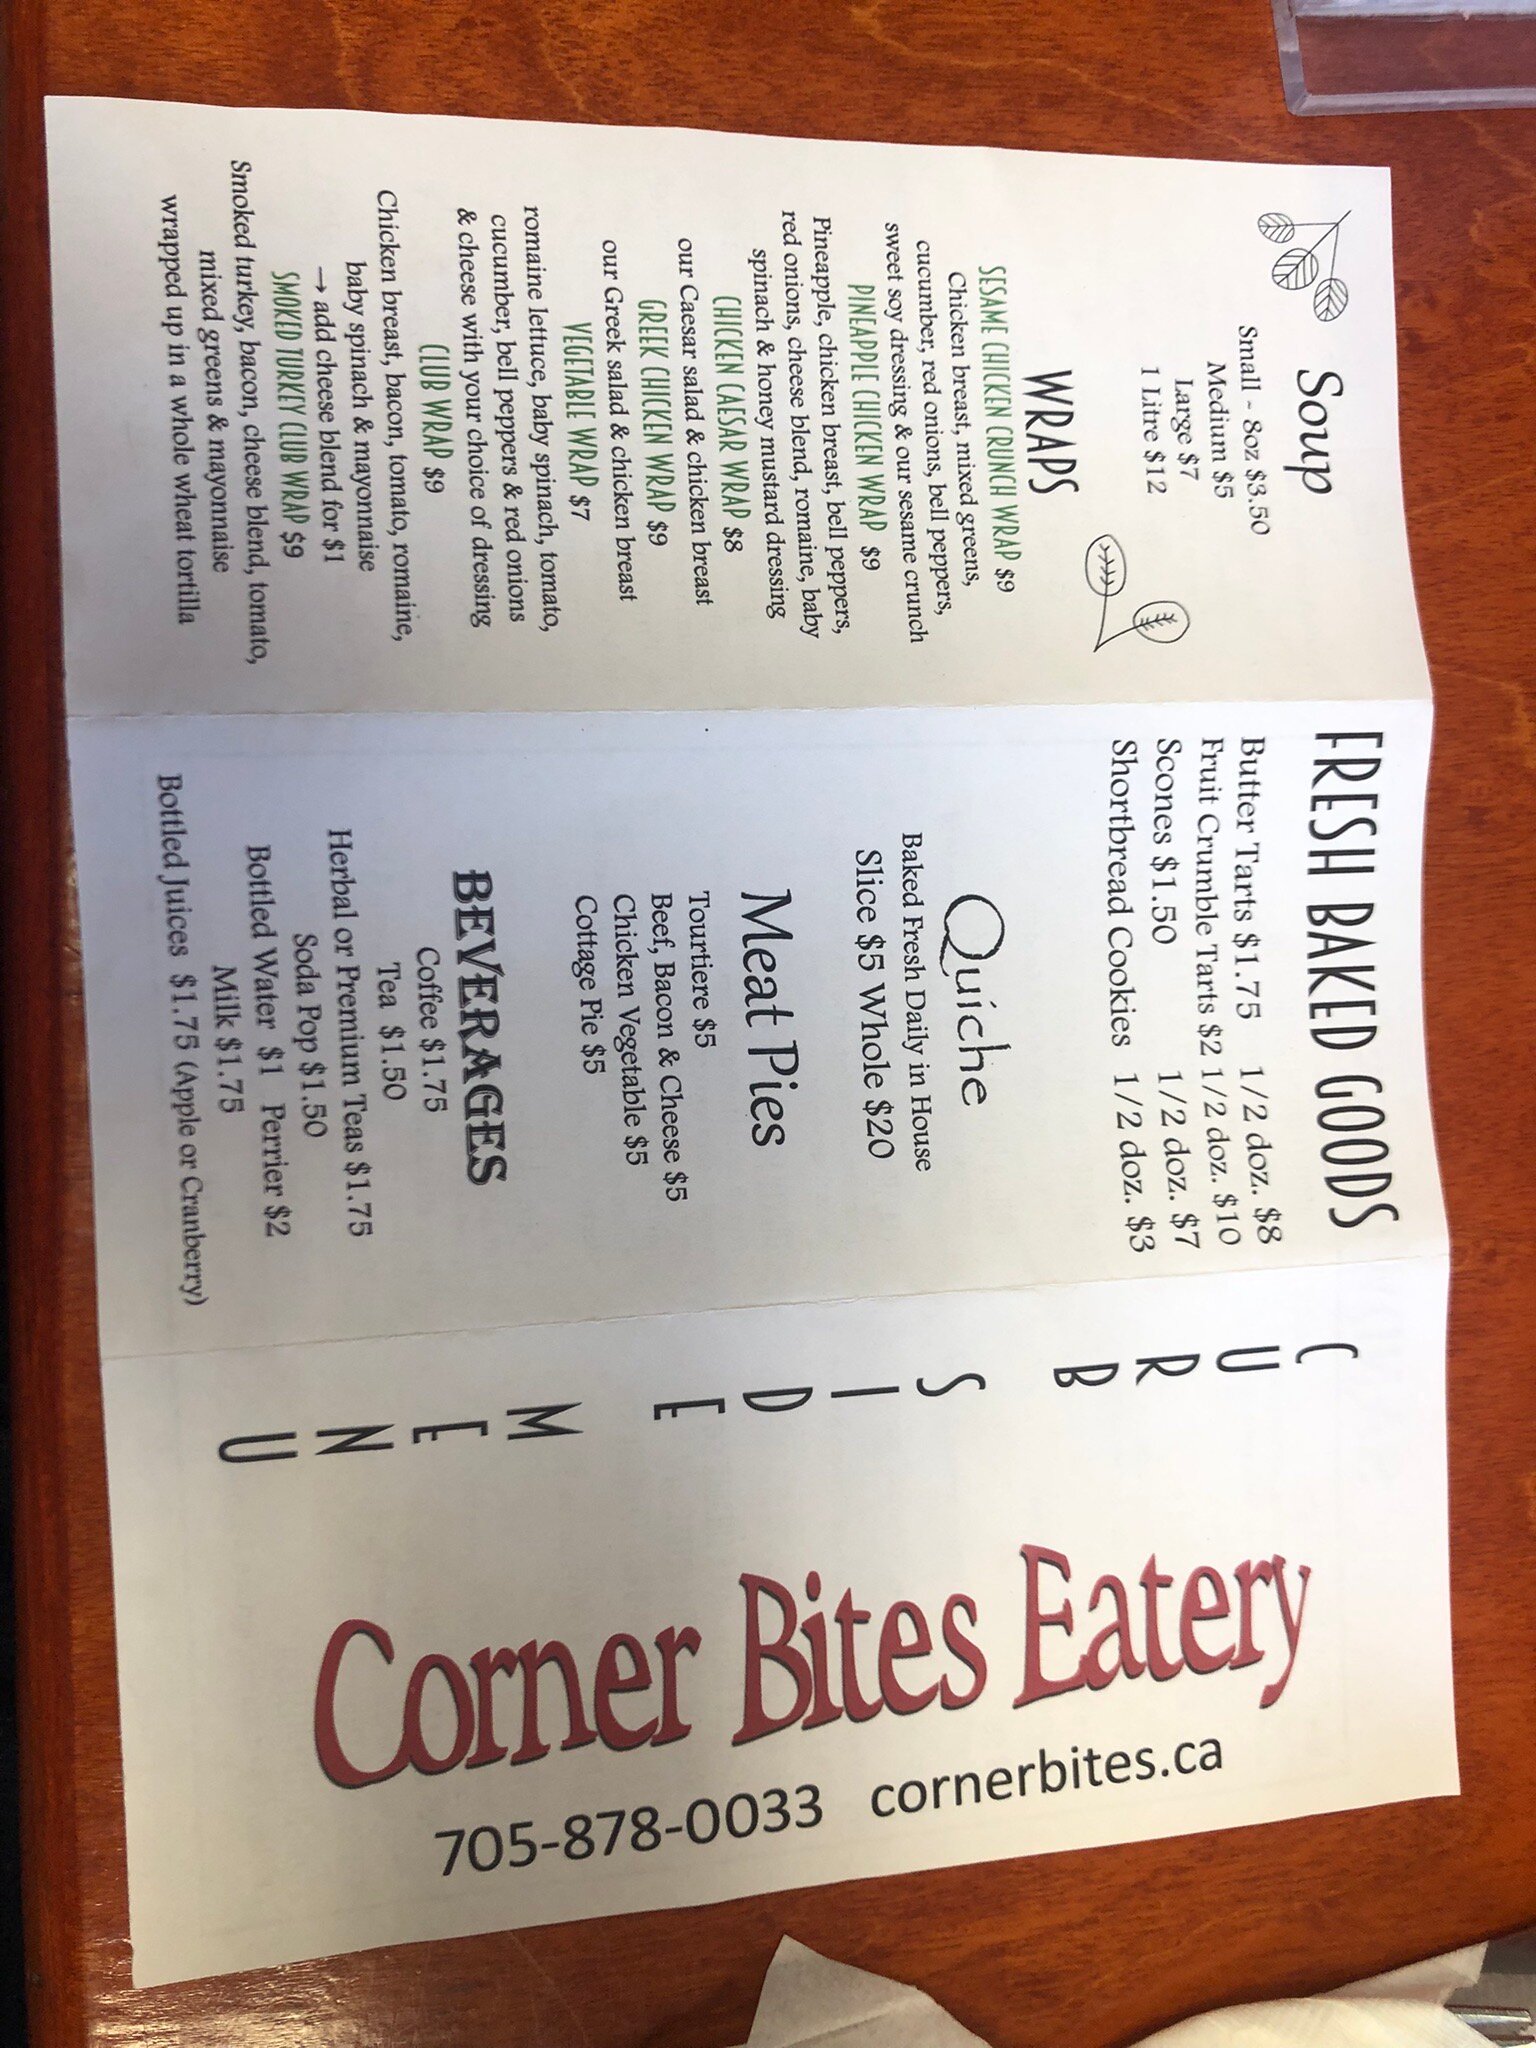 Soup
Small - 8oz $3.50
Medium $5
Large $7
1 Litre $12
WRAPS
SESAME CHICKEN CRUNCH WRAP $9
Chicken breast, mixed greens,
cucumber, red onions, bell peppers,
sweet soy dressing & our sesame crunch
PINEAPPLE CHICKEN WRAP $9
Pineapple, chicken breast, bell peppers,
red onions, cheese blend, romaine, baby
spinach & honey mustard dressing
CHICKEN CAESAR WRAP $8
our Caesar salad & chicken breast
GREEK CHICKEN WRAP $9
our Greek salad & chicken breast
VEGETABLE WRAP $7
romaine lettuce, baby spinach, tomato,
cucumber, bell peppers & red onions
& cheese with your choice of dressing
CLUB WRAP $9
Chicken breast, bacon, tomato, romaine,
baby spinach & mayonnaise
→ add cheese blend for $1
SMOKED TURKEY CLUB WRAP $9
Smoked turkey, bacon, cheese blend, tomato,
mixed greens & mayonnaise
wrapped up in a whole wheat tortilla
FRESH BAKED GOODS
Butter Tarts $1.75 1/2 doz. $8
Fruit Crumble Tarts $2 1/2 doz. $10
Scones $1.50 1/2 doz. $7
Shortbread Cookies 1/2 doz. $3
Quiche
Baked Fresh Daily in House
Slice $5 Whole $20
Meat Pies
Tourtiere $5
Beef, Bacon & Cheese $5
Chicken Vegetable $5
Cottage Pie $5
BEVERAGES
Coffee $1.75
Tea $1.50
Herbal or Premium Teas $1.75
Soda Pop $1.50
Bottled Water $1 Perrier $2
Milk $1.75
Bottled Juices $1.75 (Apple or Cranberry)
CURBSIDE MENU
Corner Bites Eatery
705-878-0033 cornerbites.ca